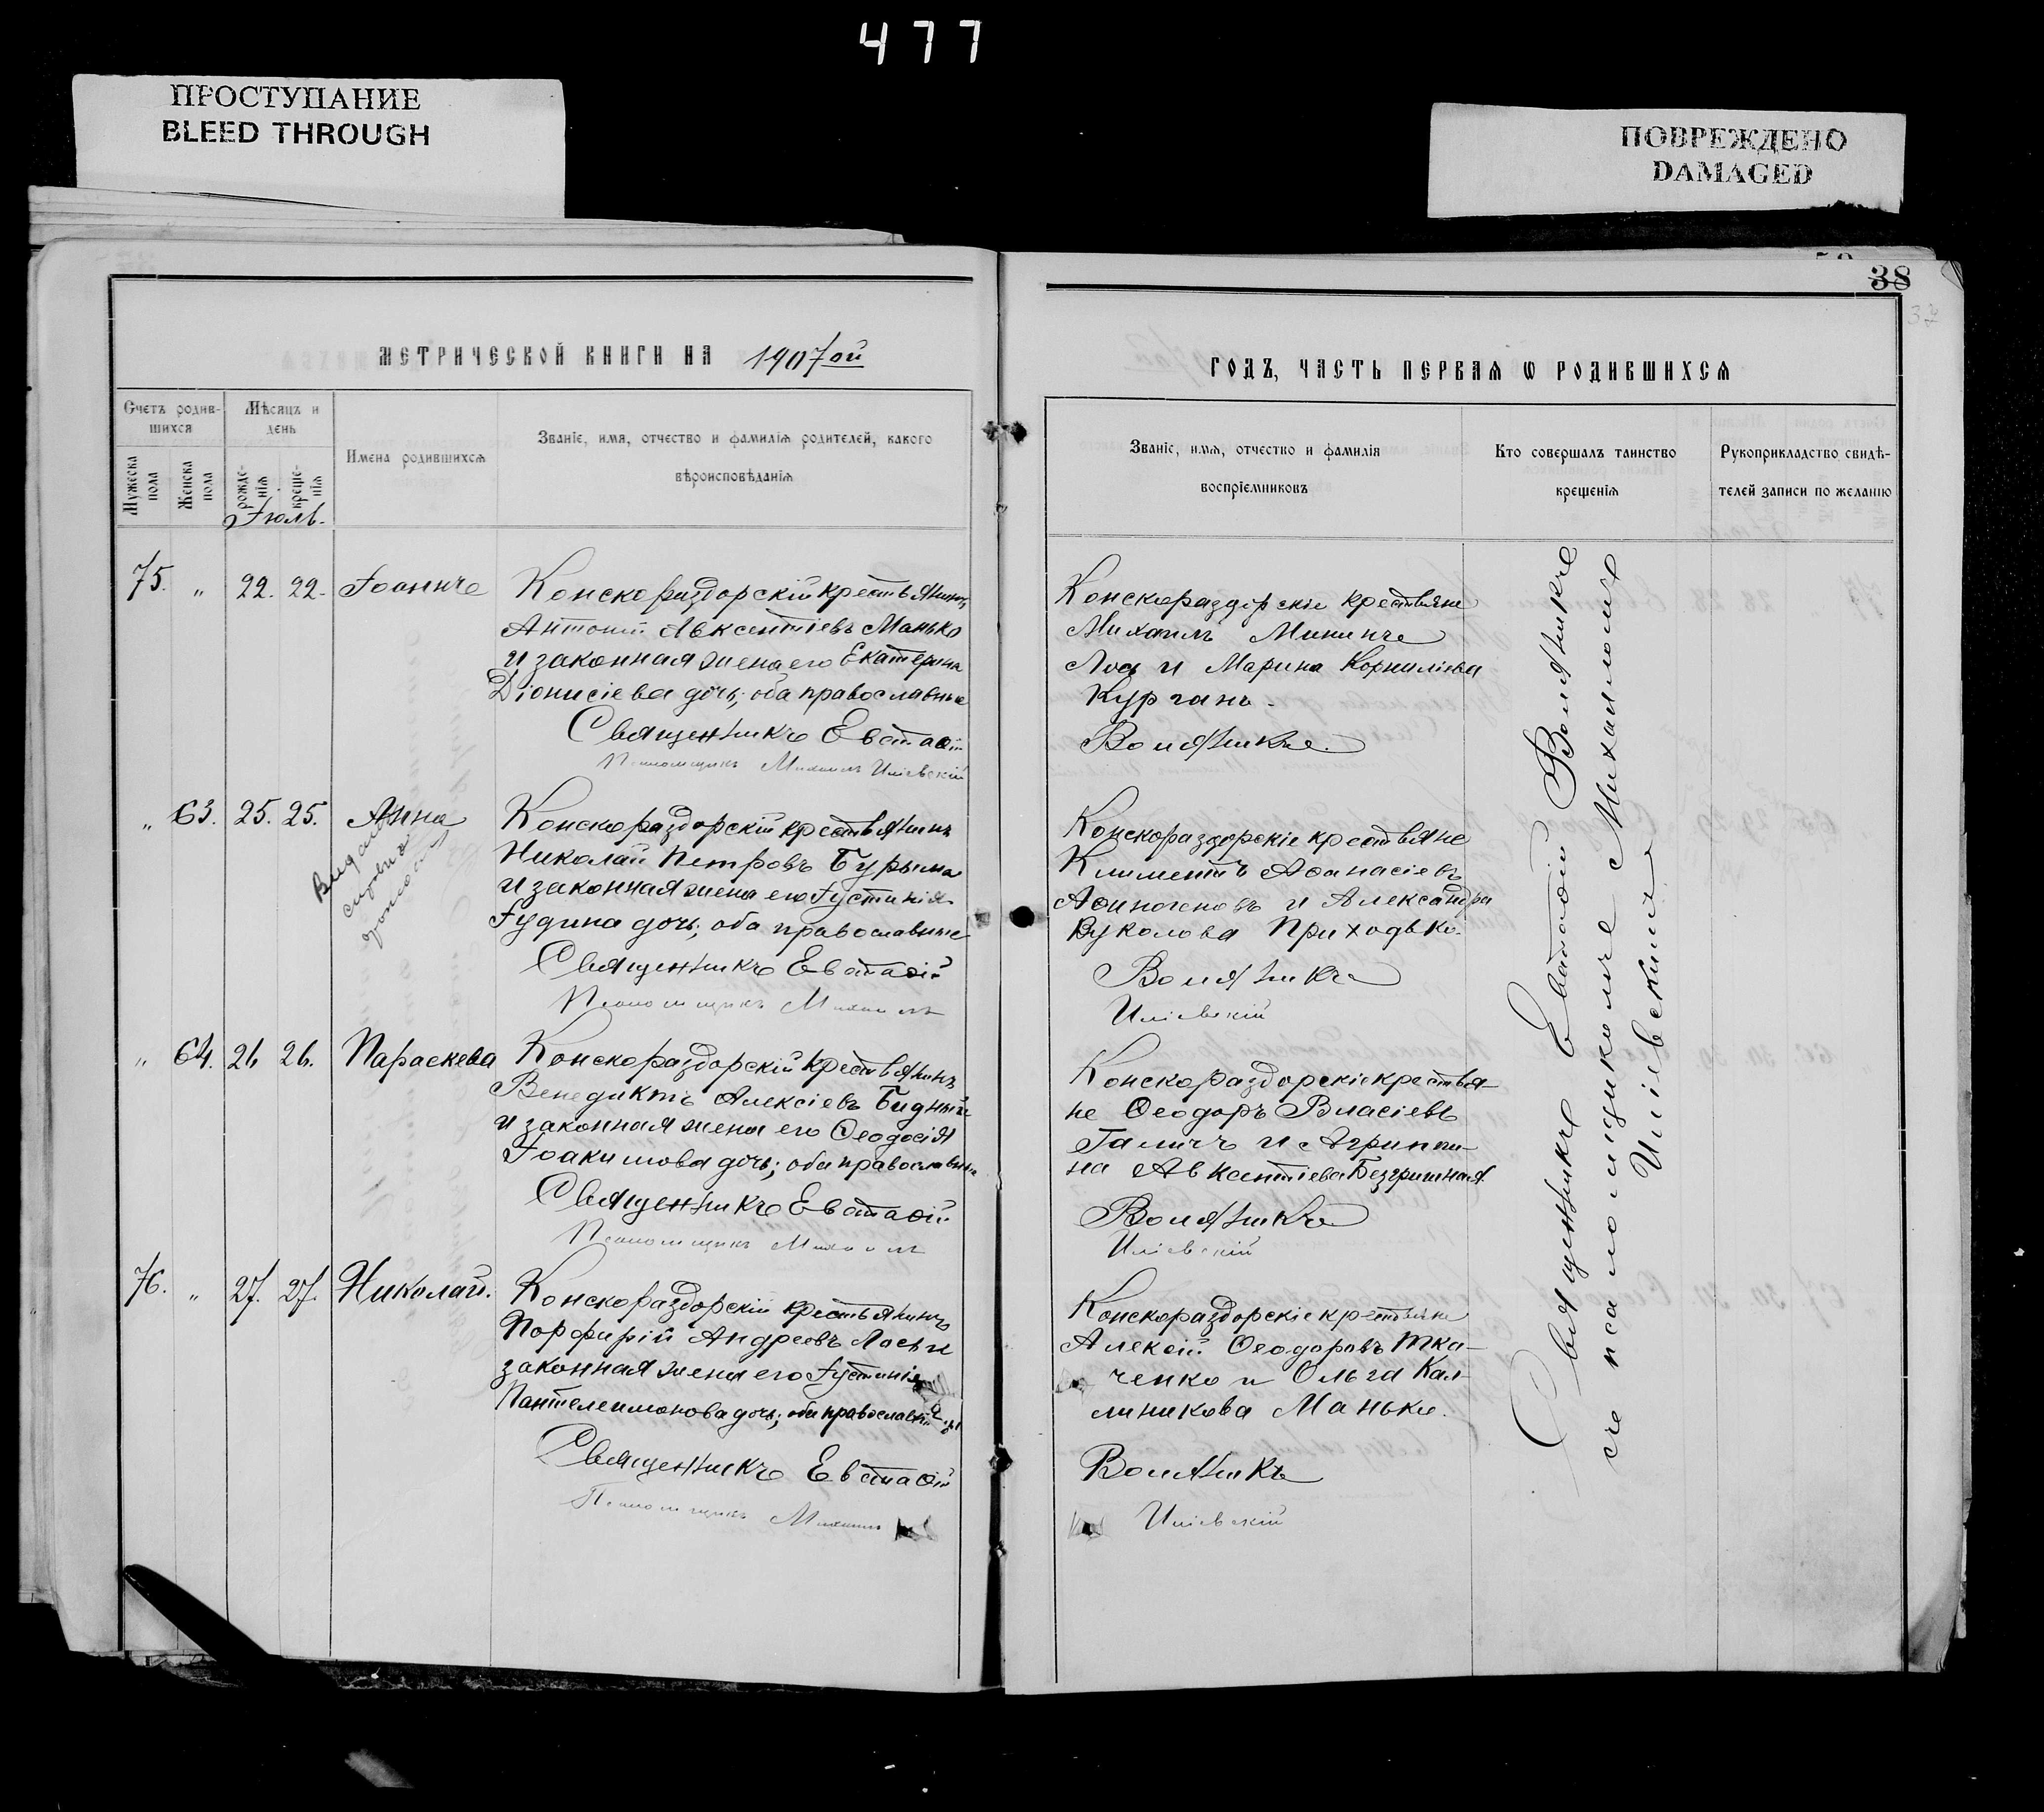 477
ПРОСТУПАНИЕ
BLEED THROUGH
ПОВРЕЖДЕНО
DAMAGED
38
37
МЕТРИЧЕСКОЙ КНИГИ НА 1907ой
Счетъ родив-
шихся
Мѣсяцъ и
день
Мужеска
пола
Женска
пола
рожде-
нія
креще-
нія
Имена родившихся
Званіе, имя, отчество и фамилія родителей, какого
вѣроисповѣданія
Іюль.
75. „ 22. 22. Іоаннъ
Конскораздорскій крестьянинъ
Антоній Авксентіевъ Манько
и законная жена его Екатерина
Діонисіева дочь; оба православные
Священникъ Евстаѳій
Псаломщикъ Михаилъ Иліевскій
„ 63. 25. 25. Анна
Конскораздорскій крестьянинъ
Николай Петровъ Бурыма
и законная жена его Іустинія
Іудина дочь; оба православные
Священникъ Евстаѳій
Псаломщикъ Михаилъ
„ 64. 26 26. Параскева
Конскораздорскій крестьянинъ
Венедиктъ Алексіевъ Бидный
и законная жена его Ѳеодосія
Іоакимова дочь; оба православные
Священникъ Евстаѳій
Псаломщикъ Михаилъ
76. „ 27. 27. Николай.
Конскораздорскій крестьянинъ
Порфирій Андреевъ и
законная жена его Іустинія
Пантелеимонова дочь; оба православные
Священникъ Евстаѳій
Псаломщикъ Михаилъ
ГОДЪ, ЧАСТЬ ПЕРВАЯ Ѡ РОДИВШИХСЯ
Званіе, имя, отчество и фамилія
воспріемниковъ
Кто совершалъ таинство
крещенія
Рукоприкладство свидѣ-
телей записи по желанію
Конскораздорскіе крестьяне
Михаилъ Мининъ
и Марина Корниліева
Курганъ.
Воляникъ.
Конскораздорскіе крестьяне
Климентъ Аѳанасіевъ
Аѳиногеновъ и Александра
Вуколова Приходько.
Воляникъ
Иліевскій
Конскораздорскіе крестья-
не Ѳеодоръ Власіевъ
Галичъ и Агриппи-
на Авксентіева Безгришная
Воляникъ
Иліевскій
Конскораздорскіе крестьяне
Алексій Ѳеодоровъ Тка-
ченко и Ольга Кал-
линикова Манько.
Воляникъ
Иліевскій
Священникъ Евстаѳій Воляникъ
съ псаломщикомъ Михаиломъ
Иліевскимъ